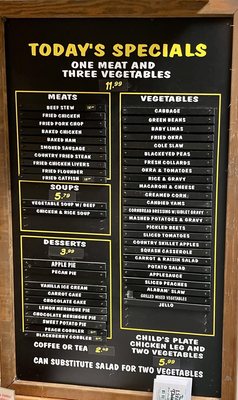 TODAY'S SPECIALS
ONE MEAT AND
THREE VEGETABLES
11.99
MEATS
BEEF STEW
FRIED CHICKEN
FRIED PORK CHOP
BAKED CHICKEN
BAKED HAM
SMOKED SAUSAGE
COUNTRY FRIED STEAK
FRIED CHICKEN LIVERS
FRIED FLOUNDER
FRIED CATFISH
SOUPS
5.79
VEGETABLE SOUP W/ BEEF
CHICKEN & RICE SOUP
DESSERTS
3.99
APPLE PIE
PECAN PIE
VANILLA ICE CREAM
CARROT CAKE
CHOCOLATE CAKE
LEMON MERINGUE PIE
CHOCOLATE MERINGUE PIE
SWEET POTATO PIE
PEACH COBBLER
BLACKBERRY COBBLER
COFFEE OR TEA
VEGETABLES
CABBAGE
GREEN BEANS
BABY LIMAS
FRIED OKRA
COLE SLAW
BLACKEYED PEAS
FRESH COLLARDS
OKRA & TOMATOES
RICE & GRAVY
MACARONI & CHEESE
CREAMED CORN
CANDIED YAMS
CORNBREAD DRESSING W/GIBLET GRAVY
MASHED POTATOES & GRAVY
PICKLED BEETS
SLICED TOMATOES
COUNTRY SKILLET APPLES
SQUASH CASSEROLE
CARROT & RAISIN SALAD
POTATO SALAD
APPLESAUCE
SLICED PEACHES
GRILLED MIXED VEGETABLES
JELLO
CHILD'S PLATE
CHICKEN LEG AND
TWO VEGETABLES
5.99
CAN SUBSTITUTE SALAD FOR TWO VEGETABLES